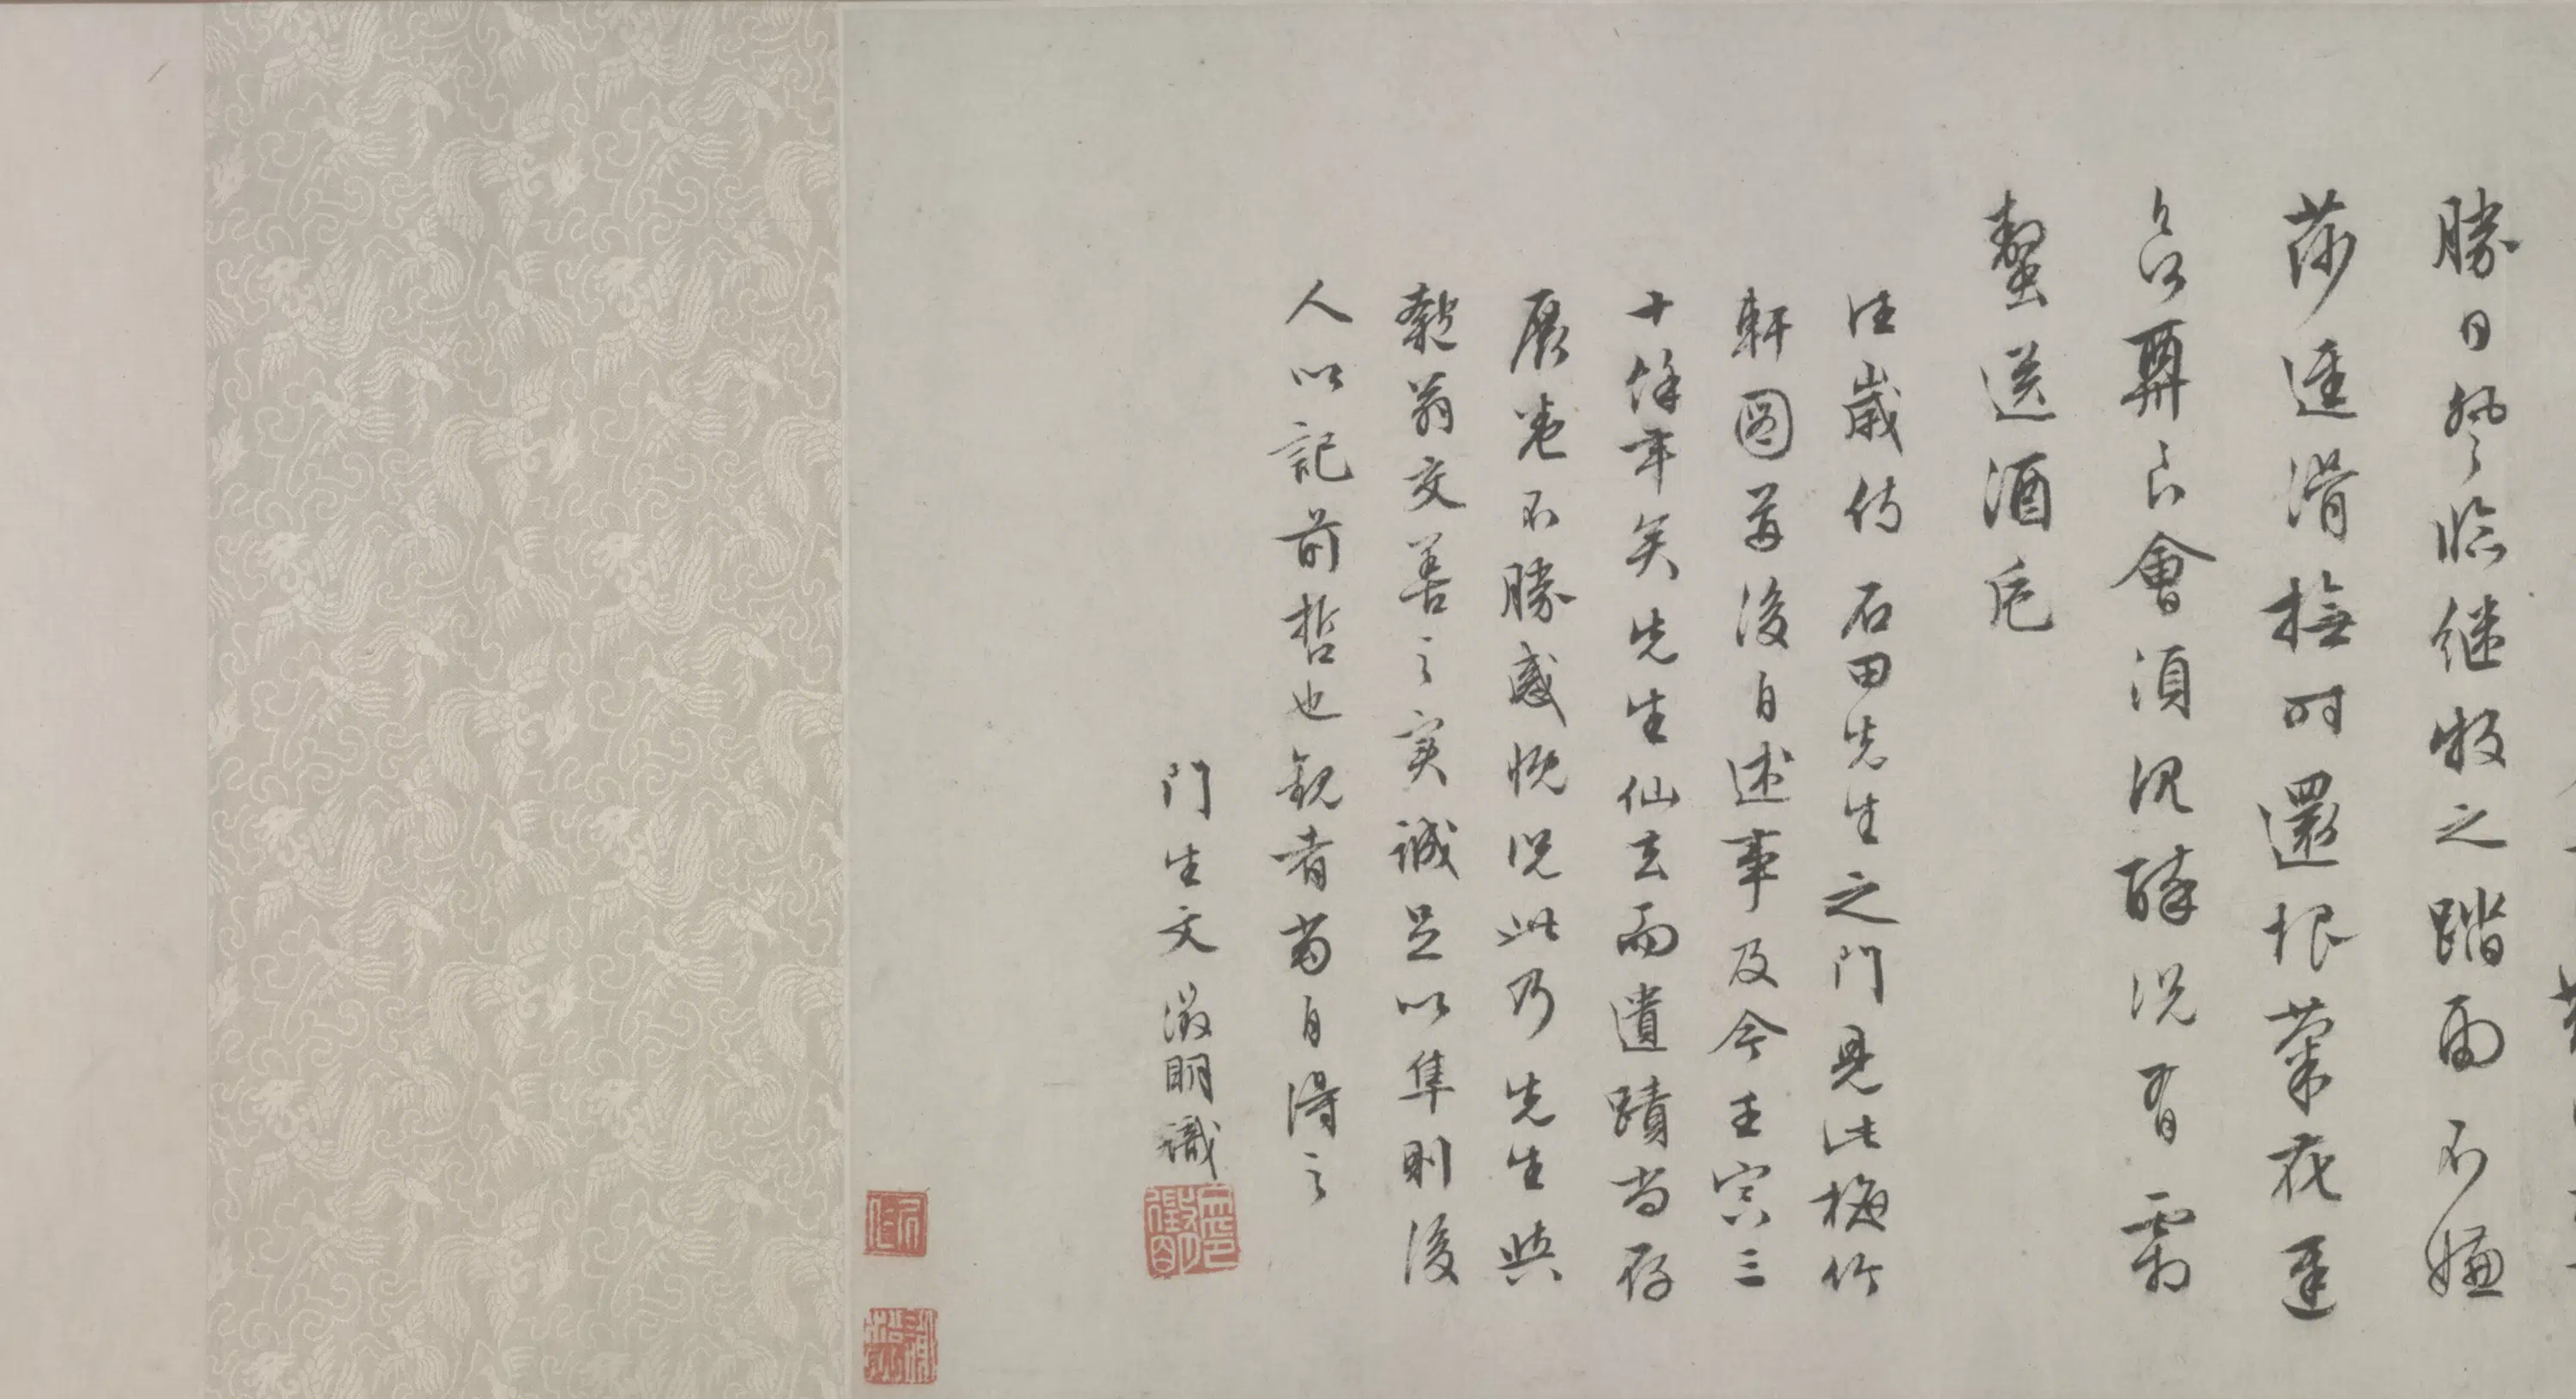 勝日風臨繼牧之踏雨不嫌
莎逕滑撫時還恨菊花遲
負耕良會須沉醉況有霜
螯送酒巵
往歲侍石田先生之門見此梅竹
軒圖筭後自述事及今壬寅三
十餘年矣先生仙去而遺蹟尚存
展卷不勝感慨況此乃先生與
翁交善之實誠足以準則後
人以記前哲也觀者當自得之
門生文徵明識